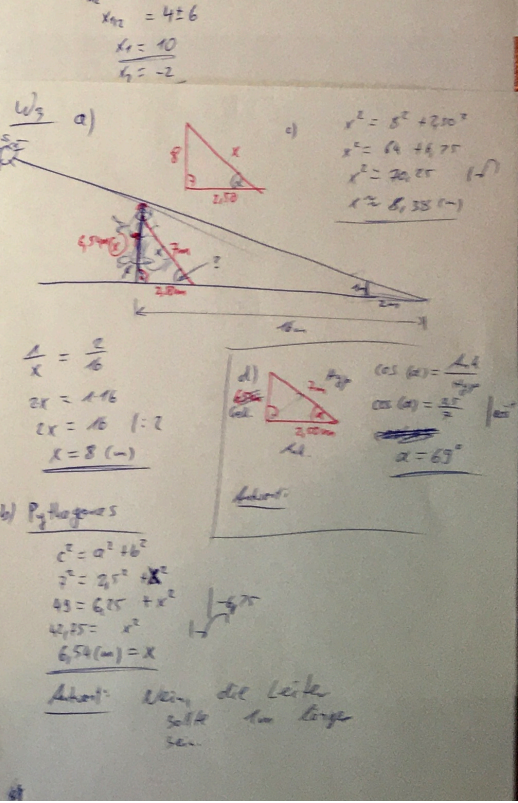 x₁/₂ = 4 ± 6
x₁ = 10
x₂ = -2
W3 a)
8
x
2,50
c)
x² = 8² + 2,50²
x² = 64 + 6,25
x² = 70,25 |√
x ≈ 8,38 (m)
6,54m (x)
7m
?
1m
2m
16m
1/x = 2/16
2x = 1·16
2x = 16 |:2
x = 8 (m)
d)
Hyp
2,50m
Ak
cos (α) = Ak/Hyp
cos (α) = 2,5/7 | cos⁻¹
α = 69°
Antwort:
b) Pythagoras
c² = a² + b²
7² = 2,5² + x²
49 = 6,25 + x² | -6,25
42,75 = x² |√
6,54 (m) = x
Antwort: Nein, die Leiter
sollte 1m länger
sein.